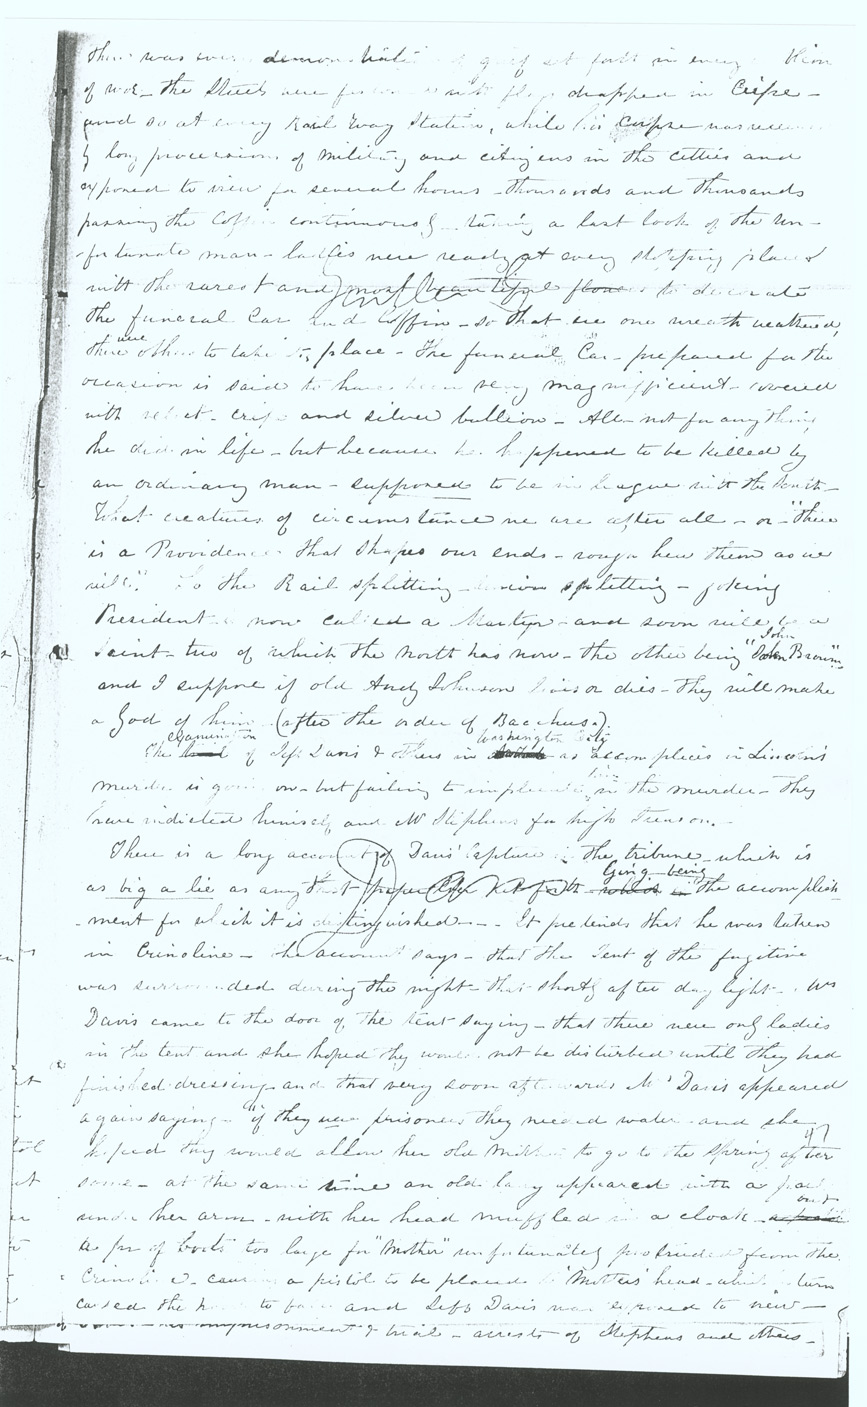 there was every demonstration of grief set forth in every
of woe - the streets were festooned with flags drapped in Crepe -
and so at every Rail Way Station, while his corpse was
by long processions of Military and citizens in the citties and
exposed to view for several hours - thousands and thousands
passing the Coffin continuously - taking a last look of the un-
-fortunate man - ladies were ready at every stopping place
with the rarest and most beautiful flowers to decorate
the funeral Car and Coffin - so that as one wreath weathered,
there were others to take its place - The funeral Car - prepared for the
occasion is said to have been very magnifficient - covered
with velvet - crepe and silver bullion - All - not for anything
he did in life - but because he happened to be killed by
an ordinary man - supposed to be in league with the South -
What creatures of circumstance we are after all - or - "there
is a Providence that shapes our ends - rough hew them as we
will". So the Rail splitting - union splitting - joking
President is now called a Martyr - and soon will be a
Saint - two of which the North has now - the other being "John John Brown"
and I suppose if old Andy Johnson lives or dies - they will make
a God of him (after the order of Bacchus).
examination Washington City
The of Jeff Davis & others in as accomplices in Lincoln's
murder is going on - but failing to implicate him in the murder - they
have indicted himself and Mr Stephens for high Treason. -
There is a long account of Davis' Capture in the tribune - which is
Giving being
as big a lie as any that paper ever put forth in the accomplish
-ment for which it is distinguished - - It pretends that he was taken
in Crinoline - the account says - that the Tent of the fugitive
was surrounded during the night - that shortly after day light - Mrs
Davis came to the door of the tent saying - that there were only ladies
in the tent and she hoped they would not be disturbed until they had
finished dressing - and that very soon afterwards Mrs Davis appeared
again saying - "if they were prisoners they needed water - and she
hoped they would allow her old Mother to go to the spring after
some - at the same time an old lady appeared with a pail
under her arm - with her head muffled in a cloak - and
a pr of boots too large for "Mother" unfortunately protruded from the
Crinoline - causing a pistol to be placed to 'Mothers' head - which in turn
caused the to and Jeff Davis was exposed to view -
his imprisonment & trial - arrests of Stephens and others -